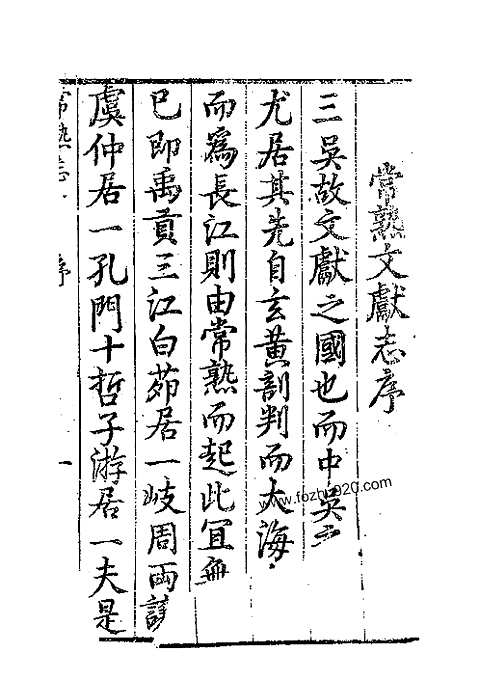 常熟文獻志序
三吳故文獻之國也而中吳
尤居其先自玄黄剖判而大海
而爲長江則由常熟而起此宜無
已即禹貢三江白茆居一岐周兩
虞仲居一孔門十哲子游居一夫是
常熟志 序 一
www.fozhu920.com